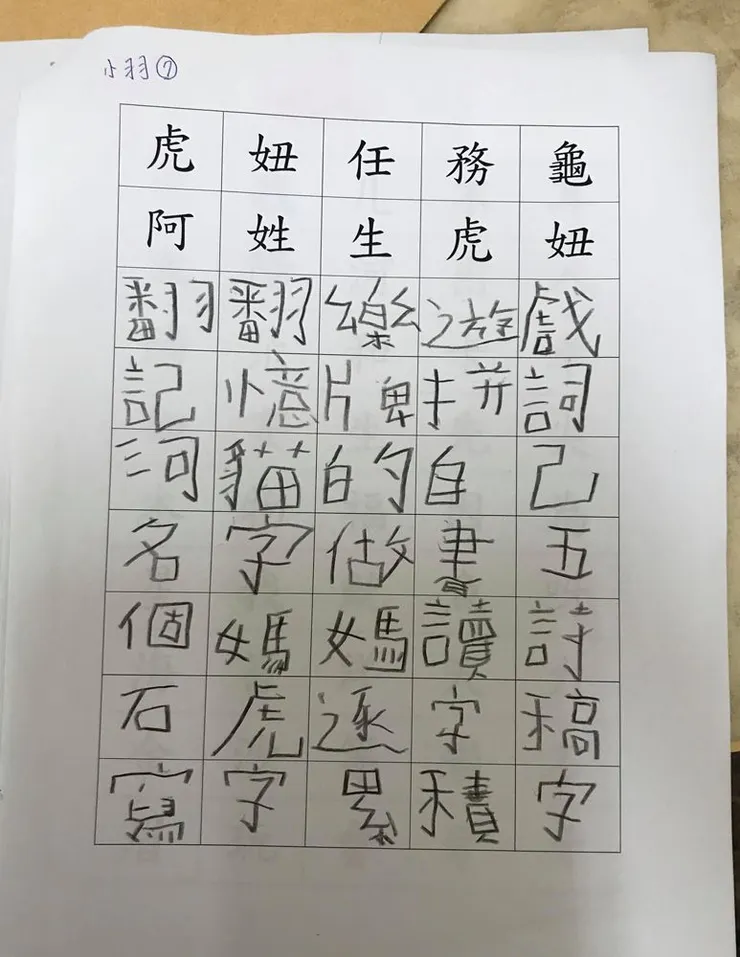 小羽⑦
虎妞任務龜
阿姓生虎妞
翻翻樂遊戲
記憶片牌拼詞
詞貓的自己
名字做書五
個媽媽讀詩
石虎逐字稿
寫字累積字